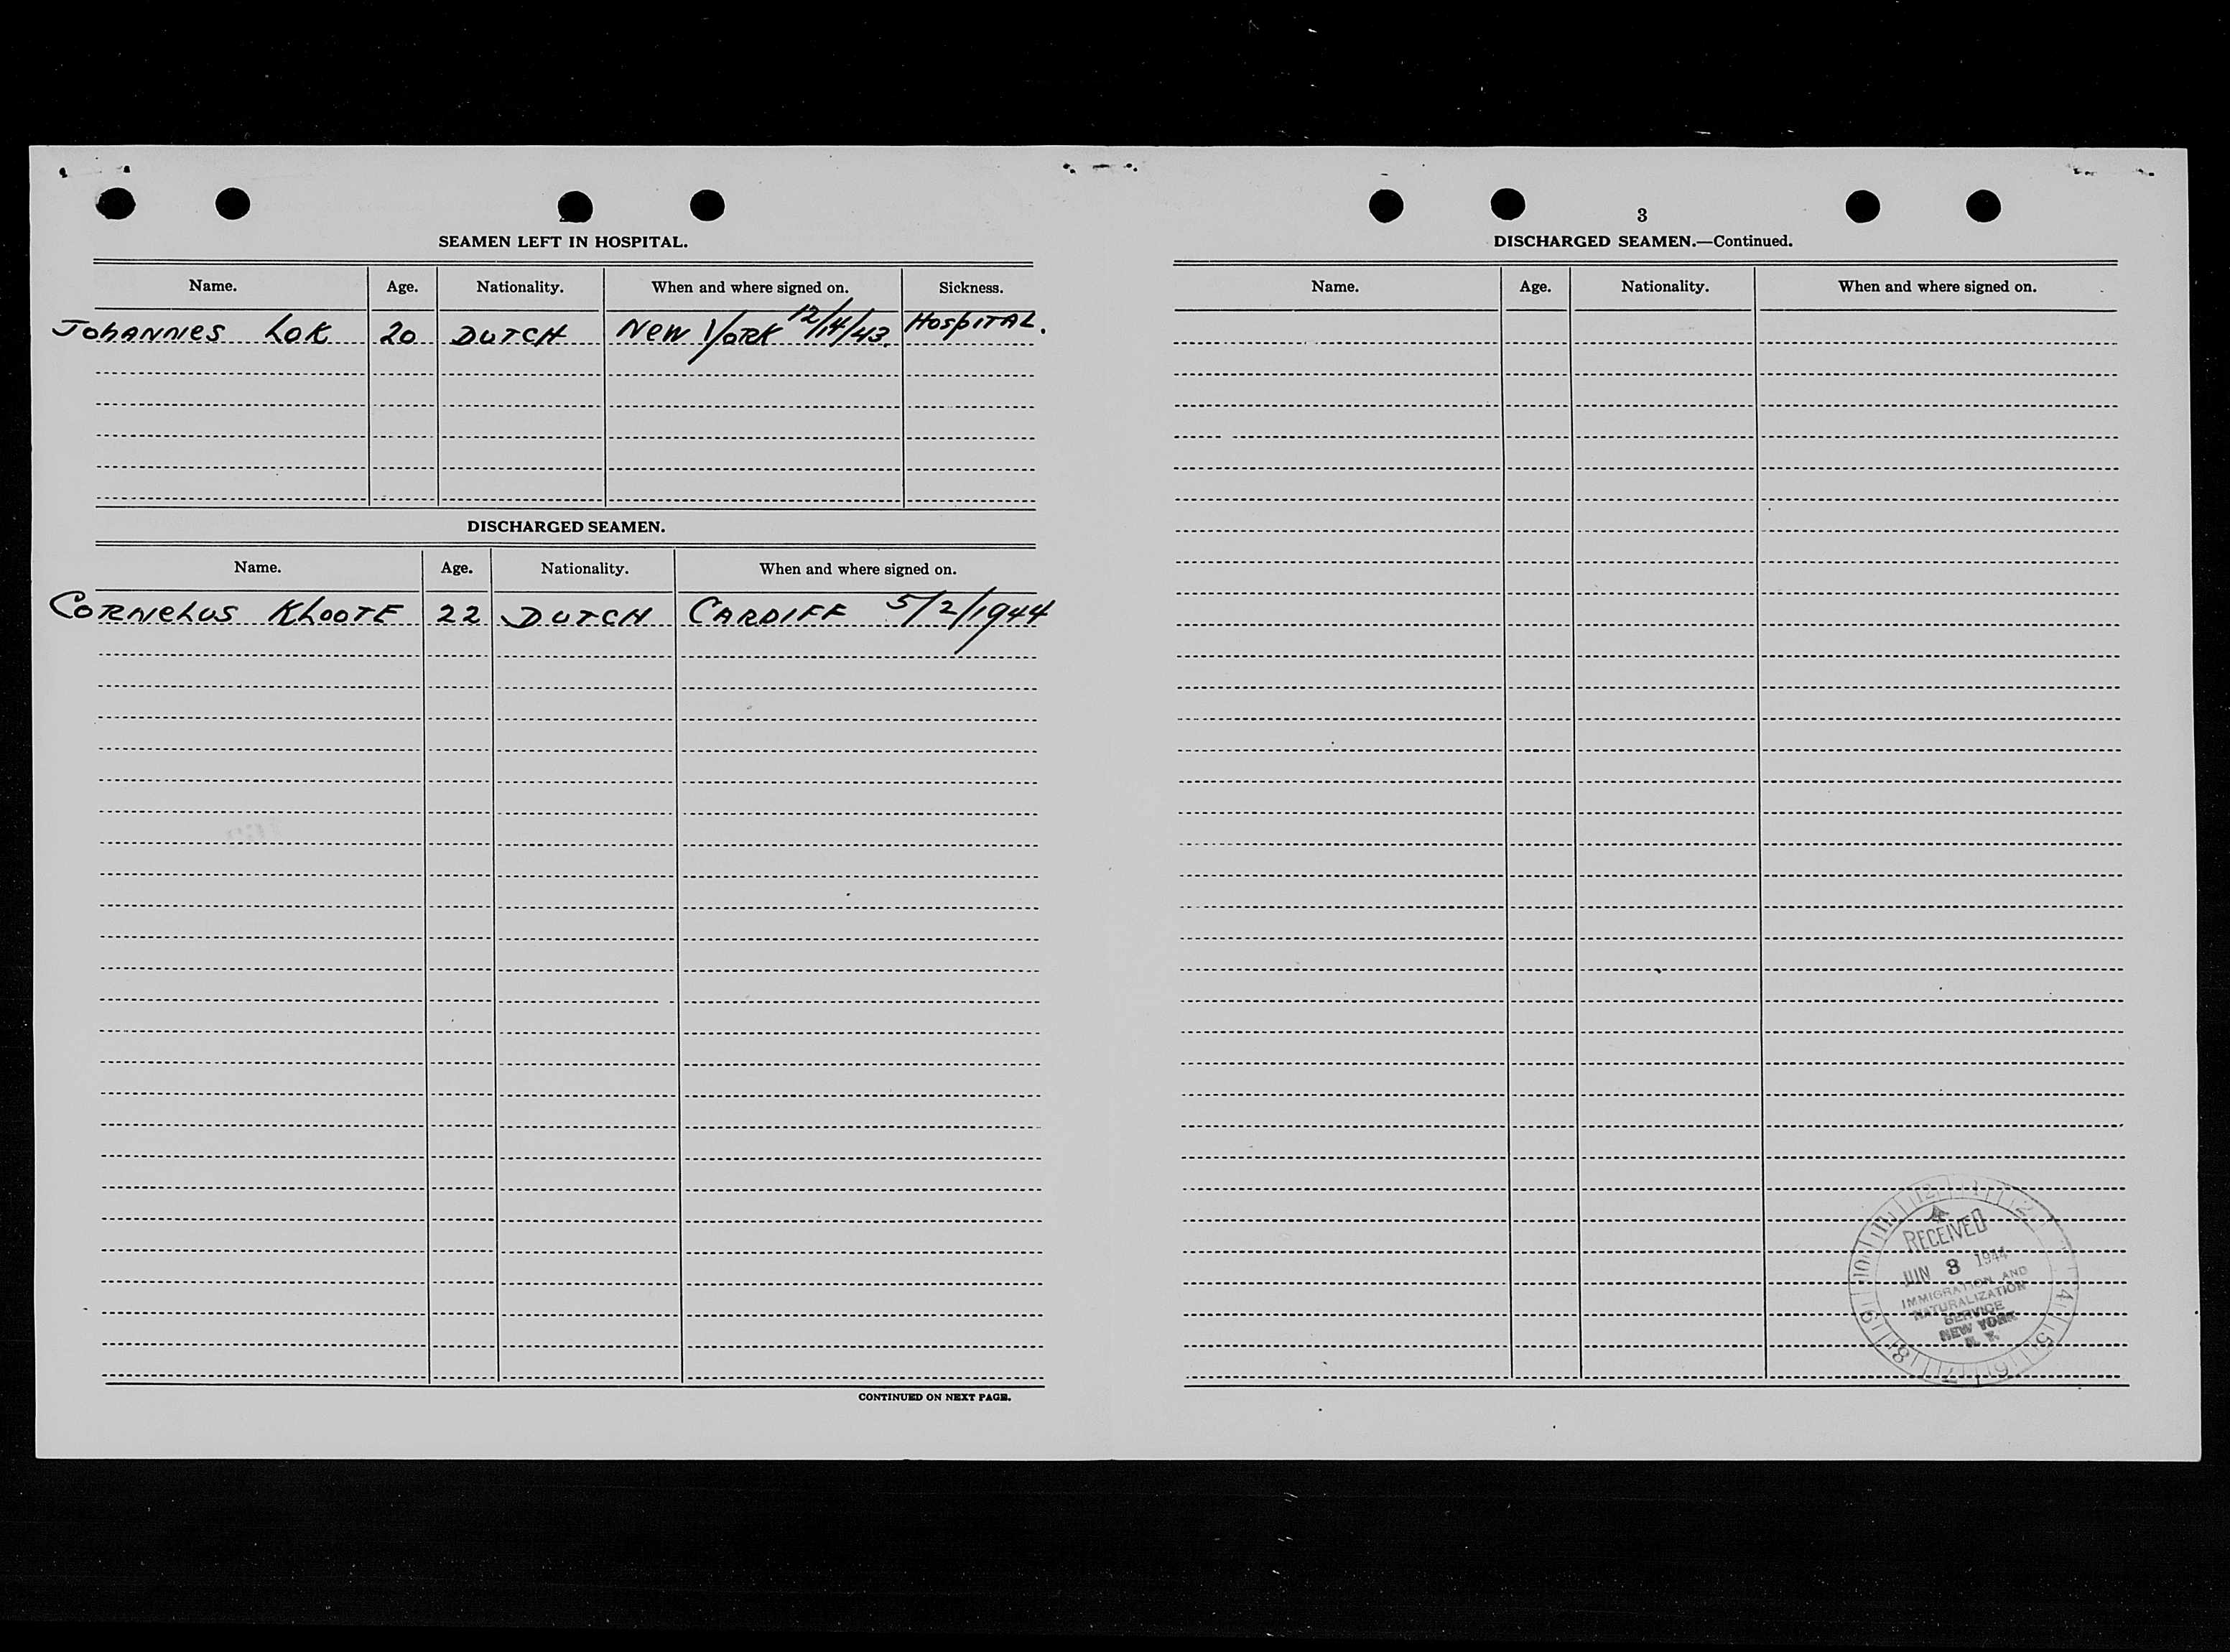 SEAMEN LEFT IN HOSPITAL.
Name. Age. Nationality. When and where signed on. Sickness.
Johannes Lok 20 DUTCH New York 12/14/43. HospITAL.
DISCHARGED SEAMEN.
Name. Age. Nationality. When and where signed on.
CORNELUS KLOOTE 22 DUTCH CARDIFF 5/2/1944
CONTINUED ON NEXT PAGE.
3
DISCHARGED SEAMEN.—Continued.
Name. Age. Nationality. When and where signed on.
12 1 2 4 5 6 7 8 9 10 11
RECEIVED
JUN 8 1944
IMMIGRATION AND
NATURALIZATION
SERVICE
NEW YORK
N. Y.